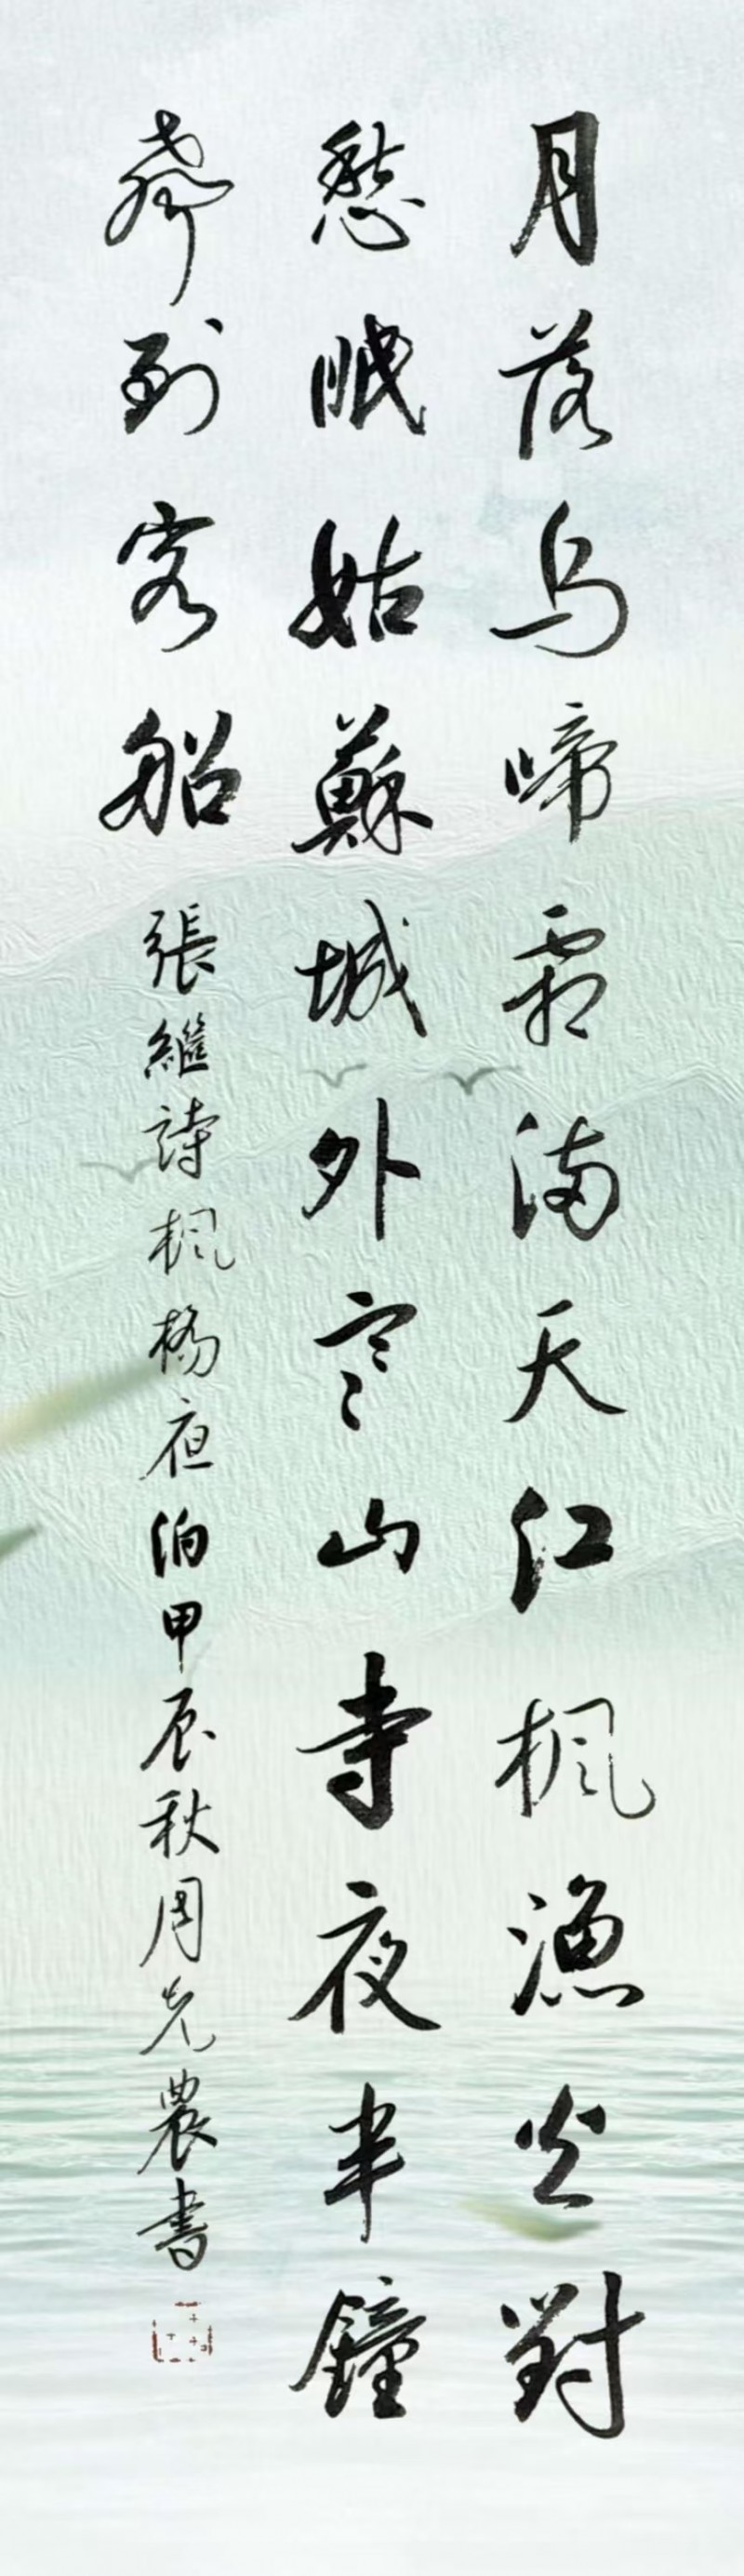 月落烏啼霜滿天江楓漁火對
愁眠姑蘇城外寒山寺夜半鐘
聲到客船 張繼詩楓橋夜泊甲辰秋周光農書